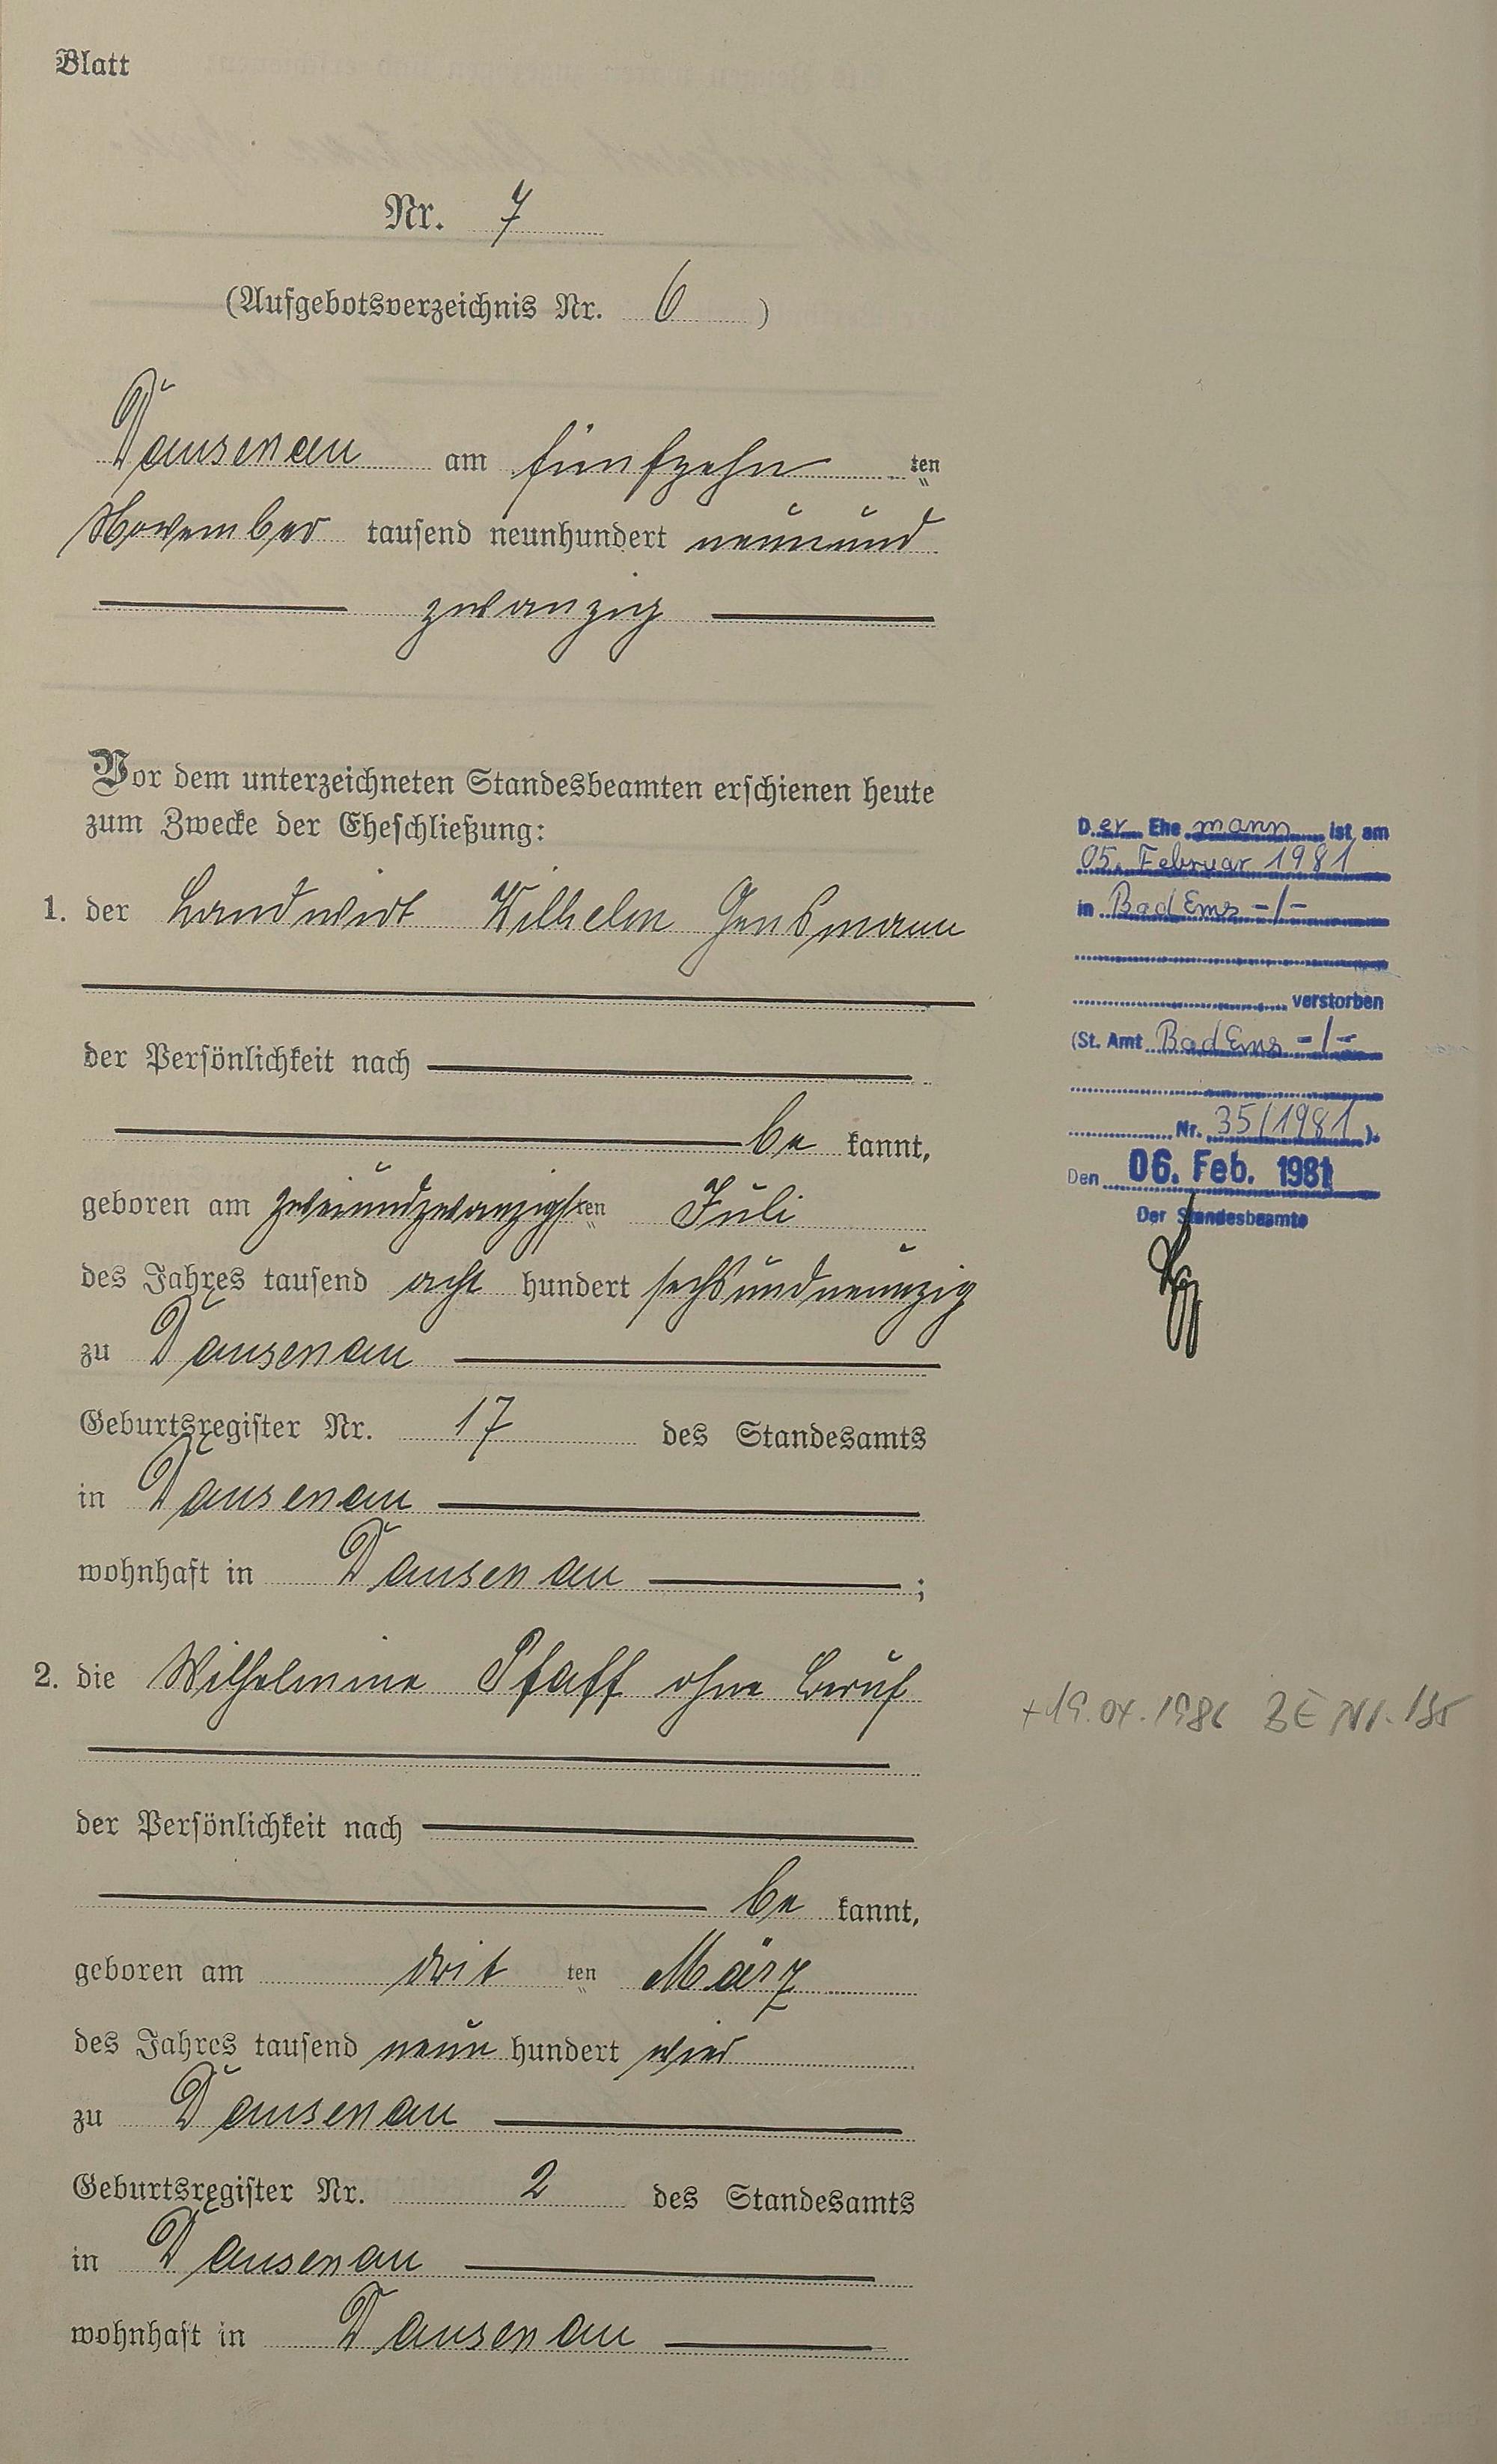 Blatt
Nr. 7
(Aufgebotsverzeichnis Nr. 6 )
Dausenau am fünfzehn ten
November tausend neunhundert neunund
zwanzig
Vor dem unterzeichneten Standesbeamten erschienen heute
zum Zwecke der Eheschließung:
1. der Landwirt Wilhelm Gensmann
der Persönlichkeit nach
be kannt,
geboren am zweiundzwanzigsten Juli
des Jahres tausend acht hundert sechsundneunzig
zu Dausenau
Geburtsregister Nr. 17 des Standesamts
in Dausenau
wohnhaft in Dausenau ;
2. die Wilhelmine Pfaff ohne Beruf
der Persönlichkeit nach
be kannt,
geboren am drit ten März
des Jahres tausend neun hundert vier
zu Dausenau
Geburtsregister Nr. 2 des Standesamts
in Dausenau
wohnhaft in Dausenau
Der Ehe mann ist am
05. Februar 1981
in Bad Ems -/-
verstorben
(St. Amt Bad Ems -/-
Nr. 35/1981 ).
Den 06. Feb. 1981
Der Standesbeamte
+19. .1986 BE Nr. 135